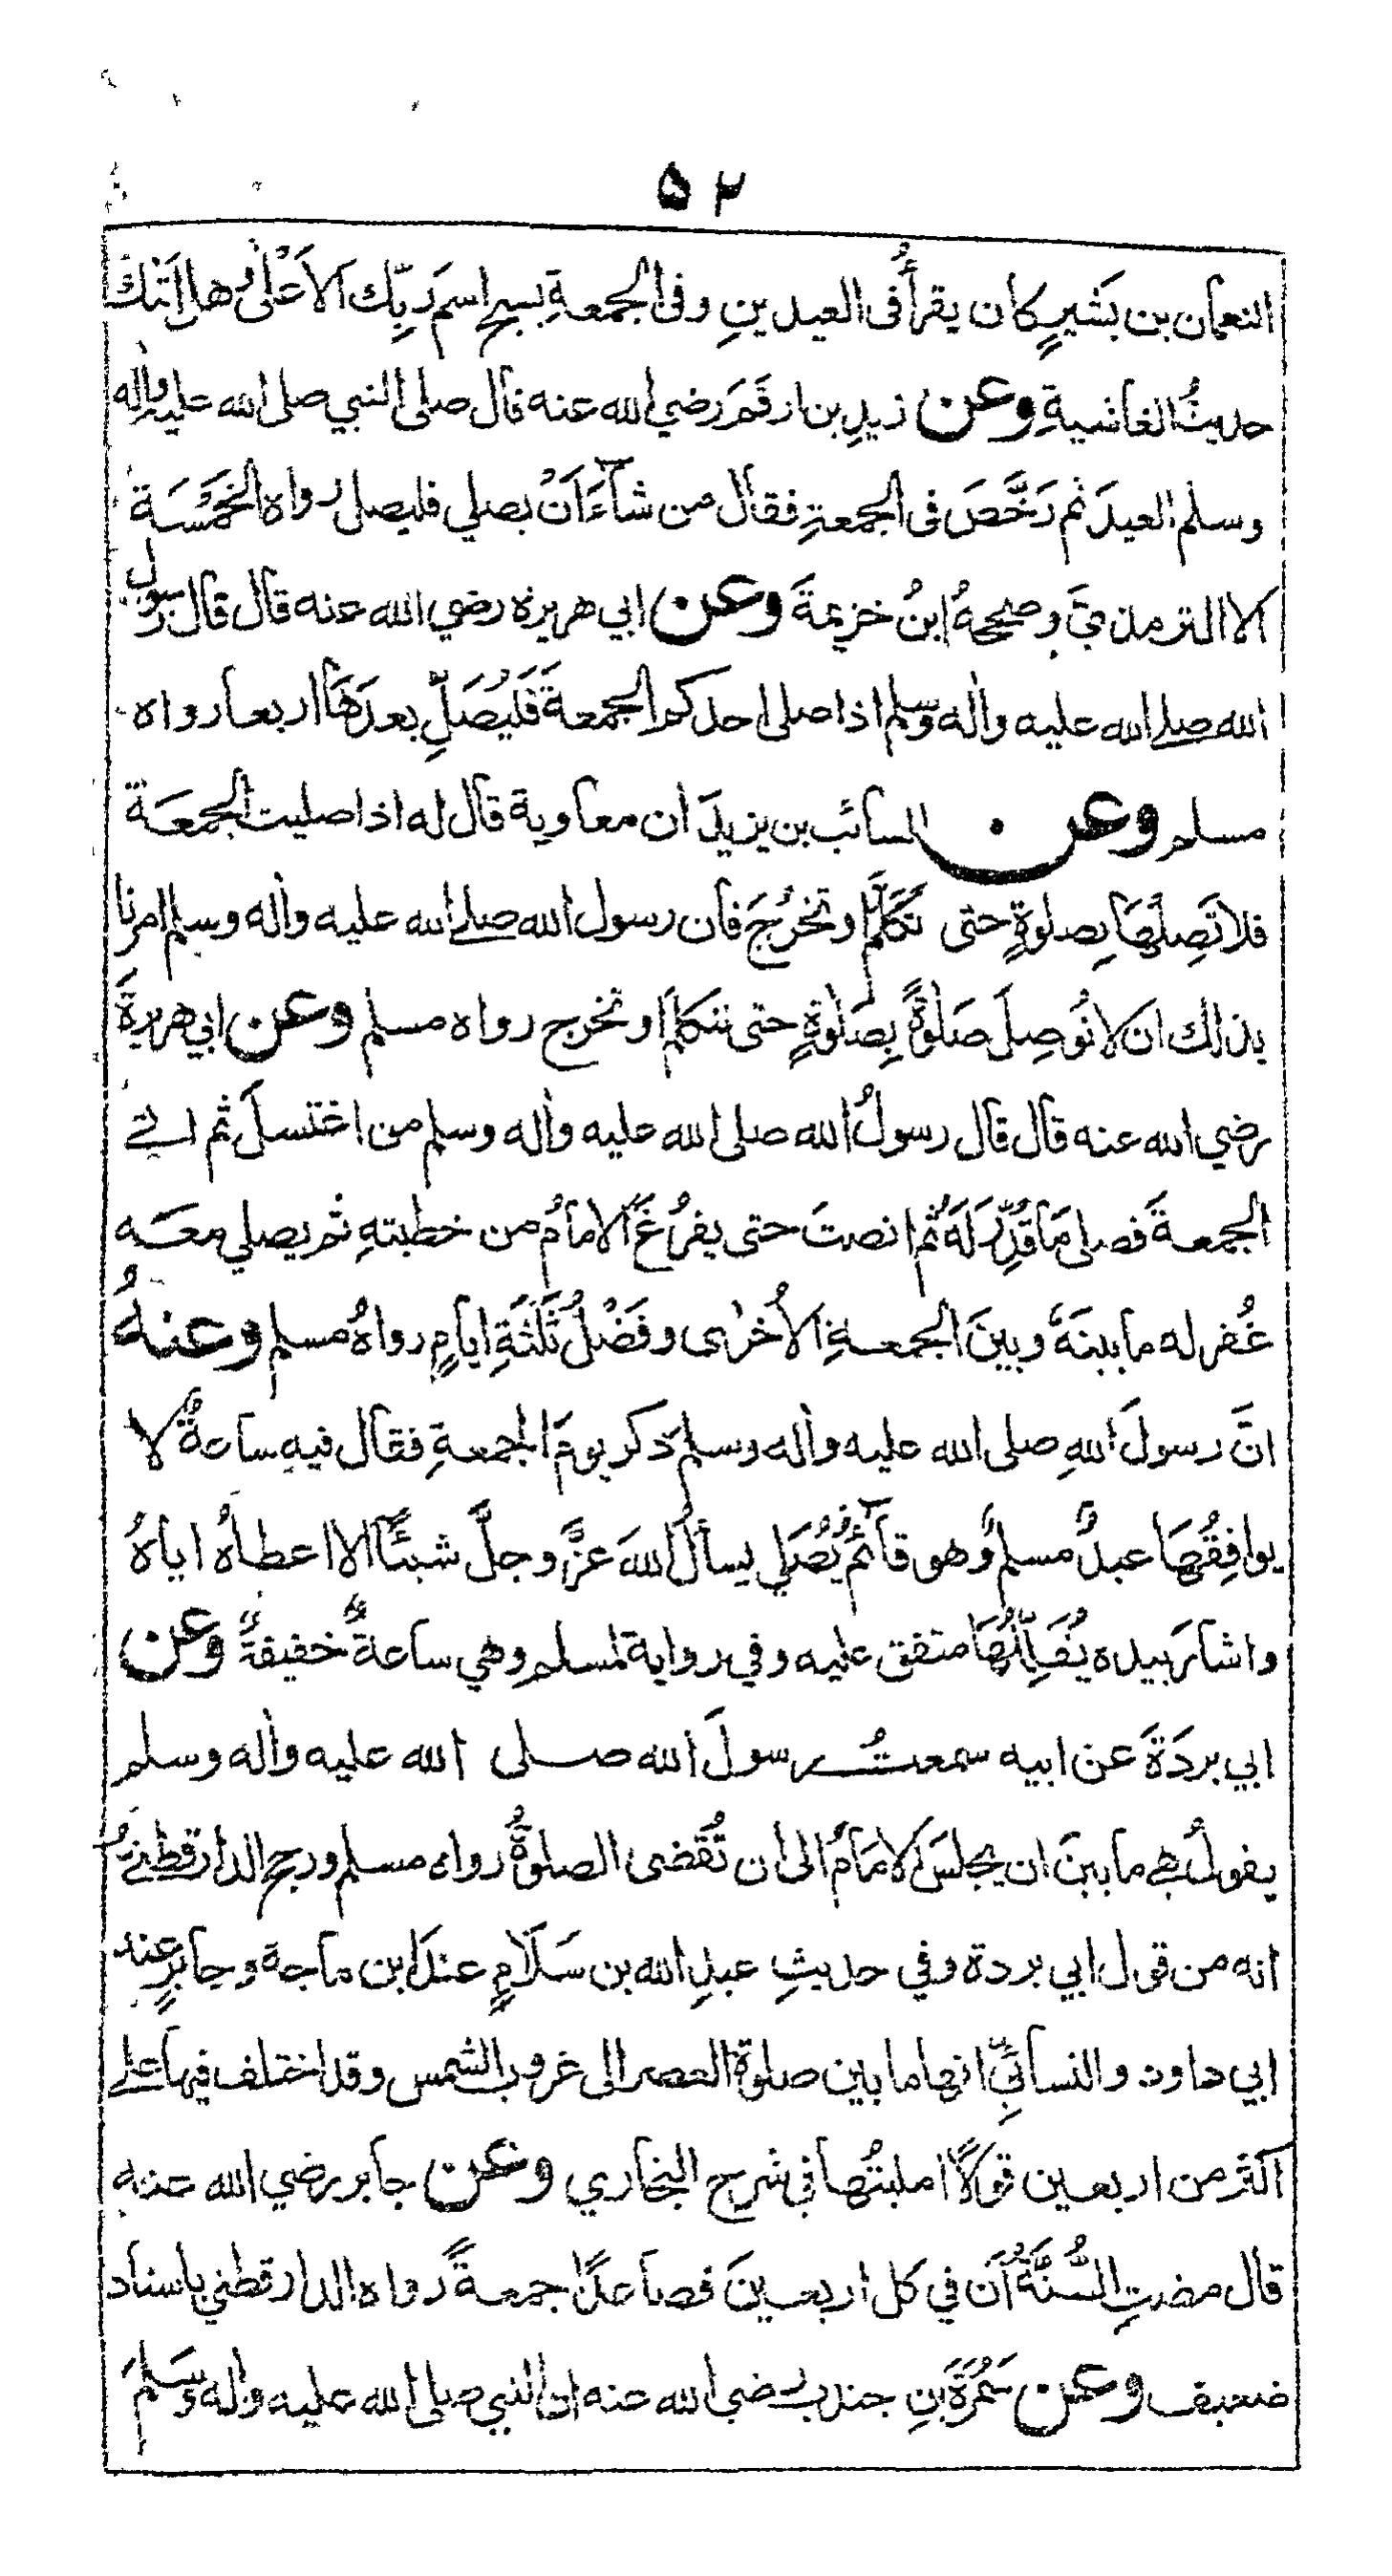 ٥٢
النعمان بن بَشيرٍ كان يقرأُ فى العيدينِ وفى الجمعةِ بسبح اسمَ رَبِّك الاَعْلٰى وهل اَتٰىكَ
حديثُ الغاشيةِ وعن زيدِ بن ارقَمَ رضي الله عنه قال صلى النبي صلى الله عليه واٰله
وسلم العيدَ ثم رَخَّصَ فى الجمعةِ فقال من شآءَ اَنْ يصلي فليصل رواه الخَمْسَة
الا الترمذيَّ وصححهُ ابنُ خزيمةَ وعن ابي هريرة رضي الله عنه قال قال رسول
الله صلے الله عليه واٰله وسلم اذا صلى احدكم الجمعةَ فَليُصَلِّ بعدَهَا اربعا رواه
مسلم وعن السائب بن يزيدَ ان معاوية قال له اذا صليت الجمعَة
فلا تَصِلْهَا بِصلوةٍ حتى تَتَكَلَّمَ او تخرُجَ فان رسول الله صلے الله عليه واٰله وسلم امرنا
بذلك ان لا نُوصِلَ صَلٰوةً بِصَلٰوةٍ حتى نتكلمَ او نخرج رواه مسلم وعن ابي هريرةَ
رضي الله عنه قال قال رسولُ الله صلى الله عليه واٰله وسلم من اغتسلَ ثم اتے
الجمعةَ فصلى مَا قُدِّرَ لَهُ ثم انصتَ حتى يفرُغَ الامامُ من خطبتهِ ثم يصلي معَه
غُفر له ما بينَهٗ وبينَ الجمعةِ الاُخرٰى وفَضْلُ ثَلٰثَةِ ايامٍ رواهُ مسلم وعنهُ
انَّ رسولَ اللهِ صلى الله عليه واٰله وسلم ذكر يومَ الجمعةِ فقال فيهِ ساعةٌ لا
يوافِقُهَا عبدٌ مسلمٌ وهو قآئمٌ يُصَلي يسألُ اللهَ عزَّ وجلَّ شيئًا الا اعطاهُ اياهُ
واشارَ بيده يُقَلِّلُهَا متفق عليه وفي رواية لمسلم وهي ساعةٌ خفيفةٌ وعن
ابي بردَةَ عن ابيه سمعتُ رسولَ الله صلى الله عليه واٰله وسلم
يقولُ هے ما بينَ ان يجلسَ الامامُ الى ان تُقضى الصلوةُ رواه مسلم ورجح الدارقطنےُّ
انه من قول ابي بردة وفي حديثِ عبدِ الله بن سَلَامٍ عندَ ابن ماجة وجابرٍ عند
ابي داود والنسائيِّ انها ما بين صلوة العصر الى غروب الشمس وقد اختلف فيها علے
اكثر من اربعين قولًا امليتُها في شرح البخاري وعن جابر رضي الله عنه
قال مضتِ السُّنَّةُ اَن في كل اربعينَ فصاعدًا جمعةً رواه الدارقطني باسناد
ضعيف وعن سَمُرَةَ بنِ جندب رضي الله عنه ان النبي صلى الله عليه واٰله وسَلم